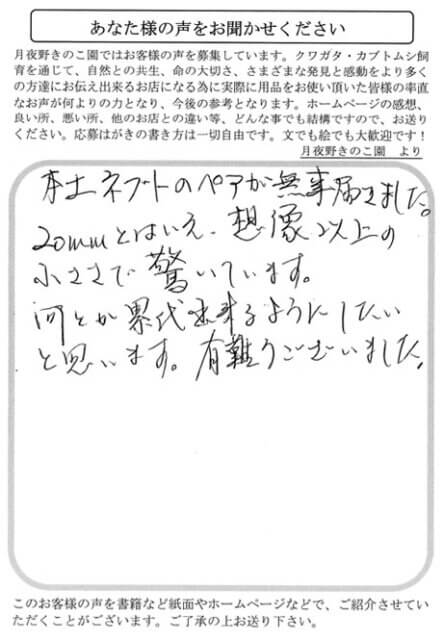 あなた様の声をお聞かせください
月夜野きのこ園ではお客様の声を募集しています。クワガタ・カブトムシ飼
育を通じて、自然との共生、命の大切さ、さまざまな発見と感動をより多く
の方達にお伝え出来るお店になる為に実際に用品をお使い頂いた皆様の率直
なお声が何よりの力となり、今後の参考となります。ホームページの感想、
良い所、悪い所、他のお店との違い等、どんな事でも結構ですので、お送り
ください。応募はがきの書き方は一切自由です。文でも絵でも大歓迎です！
月夜野きのこ園　より
本土ネブトのペアが無事届きました。
20mmとはいえ、想像以上の
小ささで驚いています。
何とか累代出来るようにしたい
と思います。有難うございました。
このお客様の声を書籍など紙面やホームページなどで、ご紹介させてい
ただくことがございます。ご了承の上お送り下さい。